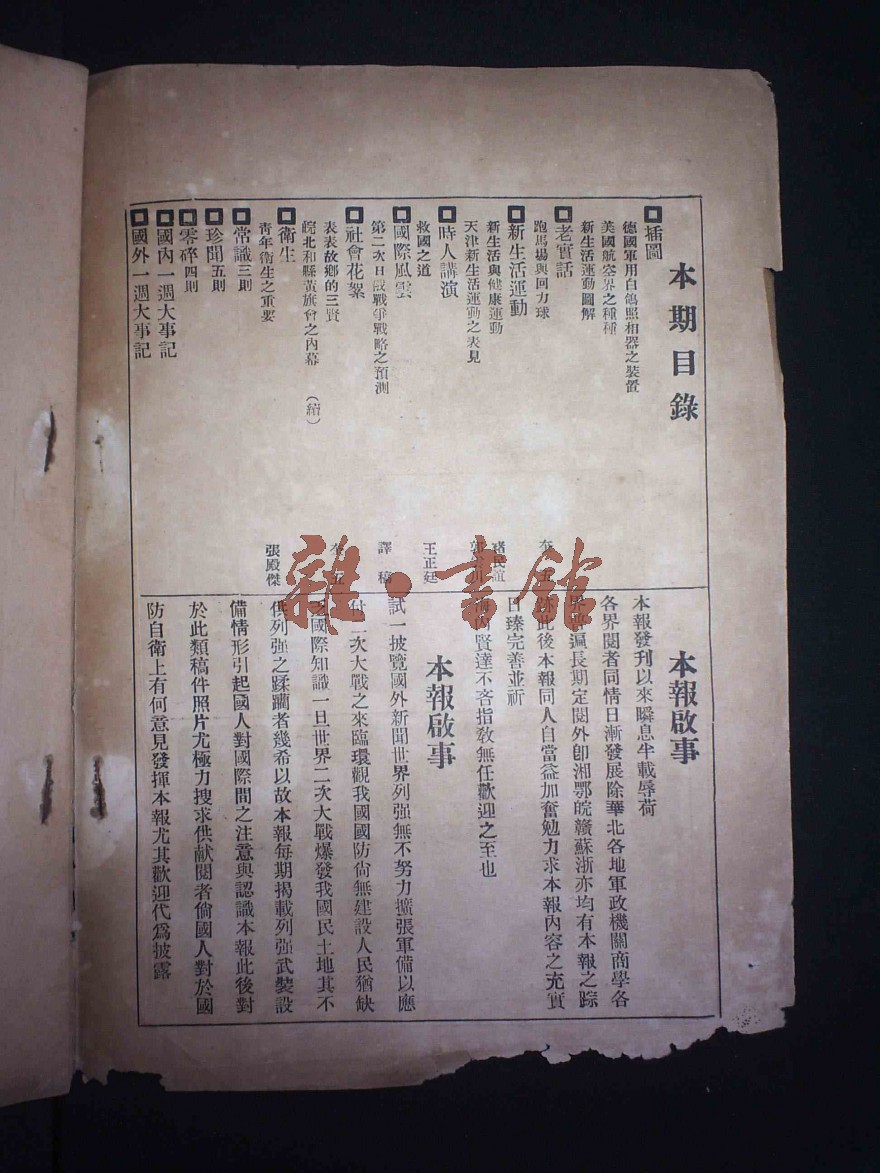 本期目錄
插圖
德國軍用白鴿照相器之裝置
美國航空界之種種
新生活運動圖解
老實話
跑馬場與回力球
新生活運動
新生活與健康運動
褚民誼
天津新生活運動之表見
時人講演
救國之道
王正廷
國際風雲
第二次日俄戰爭戰略之預測
譯稿
社會花絮
表表故鄉的三賢
皖北和縣黃旗會之內幕(續)
衛生
青年衛生之重要
張殿傑
常識三則
珍聞五則
零碎四則
國內一週大事記
國外一週大事記
本報啟事
本報發刊以來瞬息半載辱荷
各界閱者同情日漸發展除華北各地軍政機關商學各
界普遍長期定閱外卽湘鄂皖贛蘇浙亦均有本報之踪
跡此後本報同人自當益加奮勉力求本報內容之充實
日臻完善並祈
海內賢達不吝指敎無任歡迎之至也
本報啟事
試一披覽國外新聞世界列强無不努力擴張軍備以應
付二次大戰之來臨環觀我國國防尙無建設人民猶缺
乏國際知識一旦世界二次大戰爆發我國民土地其不
供列强之蹂躪者幾希以故本報每期揭載列强武裝設
備情形引起國人對國際間之注意與認識本報此後對
於此類稿件照片尤極力搜求供献閱者倘國人對於國
防自衛上有何意見發揮本報尤其歡迎代爲披露
雜·書館